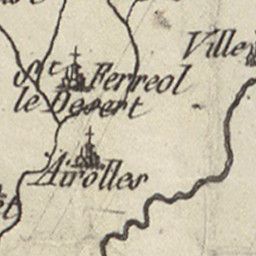 Ville
St Ferreol
le Desert
Airolles